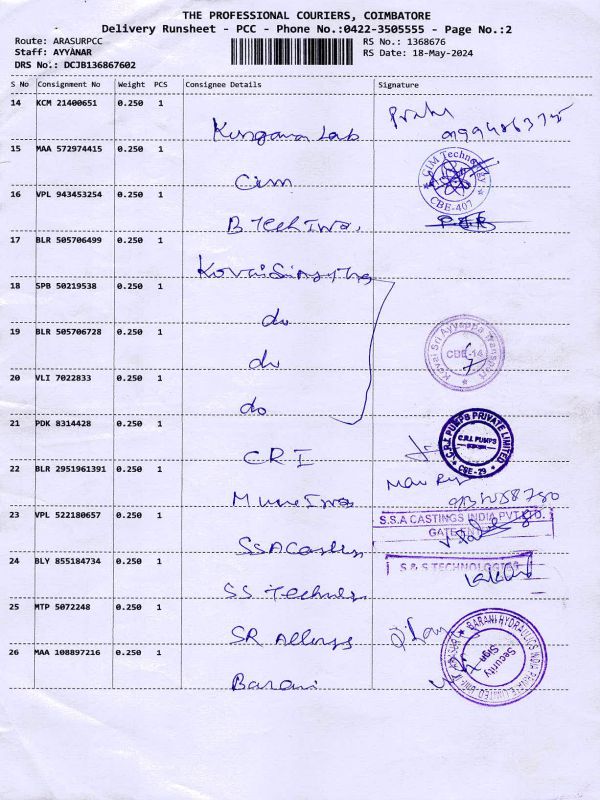 THE PROFESSIONAL COURIERS, COIMBATORE
Delivery Runsheet - PCC - Phone No.:0422-3505555 - Page No.:2
Route: ARASURPCC
RS No.: 1368676
Staff: AYYANAR
RS Date: 18-May-2024
DRS No.: DCJB136867602
S No Consignment No Weight PCS Consignee Details Signature
14 KCM 21400651 0.250 1
Lab
15 MAA 572974415 0.250 1
CIM Technology
CBE-407
Cim
16 VPL 943453254 0.250 1
B Tech
17 BLR 505706499 0.250 1
Kovai
18 SPB 50219538 0.250 1
do
19 BLR 505706728 0.250 1
Kovai Sri Ayyappa Transport
CBE-14
do
20 VLI 7022833 0.250 1
do
21 PDK 8314428 0.250 1
C.R.I. PUMPS PRIVATE LIMITED
C.R.I. PUMPS
CBE-29
CRI
22 BLR 2951961391 0.250 1
23 VPL 522180657 0.250 1
S.S.A CASTINGS INDIA PVT LTD.
SSA
24 BLY 855184734 0.250 1
S & S TECHNOLOGIES
SS
25 MTP 5072248 0.250 1
SR Alloys
26 MAA 108897216 0.250 1
BARANI HYDRAULICS INDIA PRIVATE LIMITED
Security
Sign
Barani